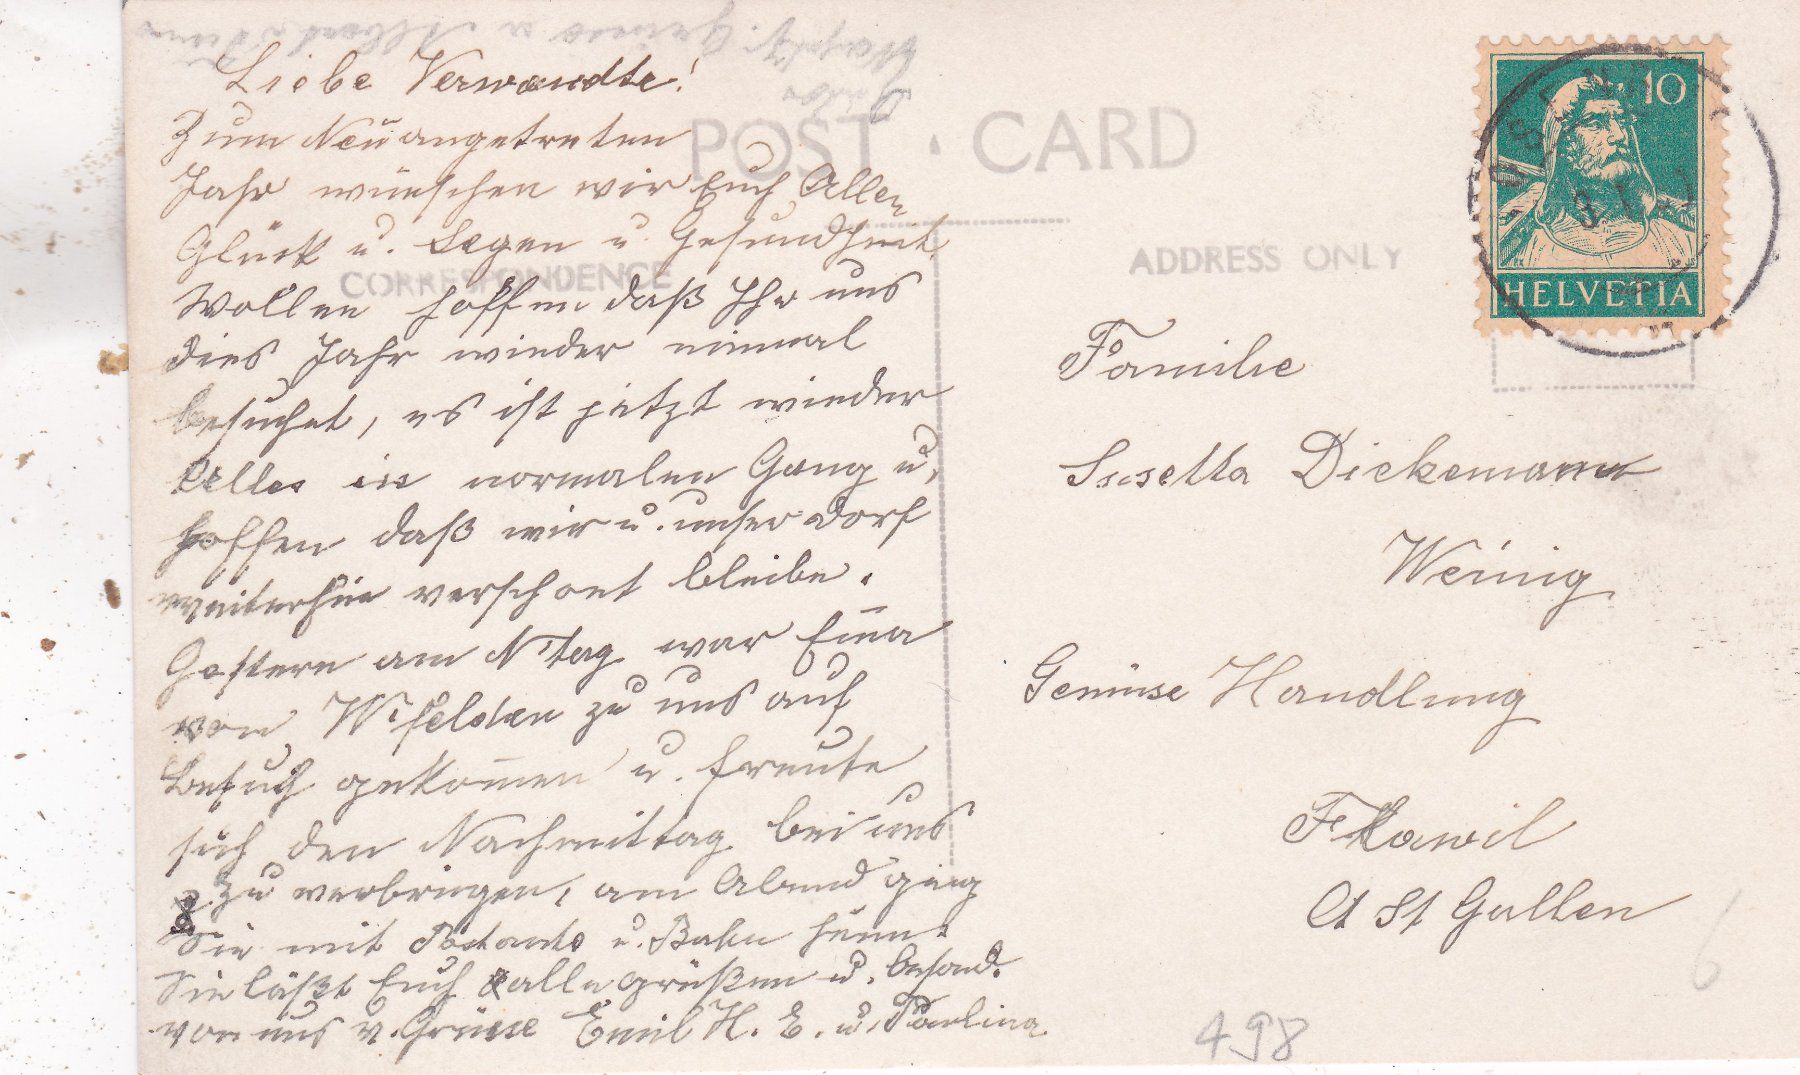 Liebe Verwandte!
Zum Neuangetreten
Jahr wünschen wir Euch Allen
Glück u. Segen u Gesundheit.
Wollen hoffen daß Ihr uns
dies Jahr wieder einmal
besuchet, es ist jetzt wieder
Alles in normalen Gang u.
hoffen daß wir u. unser Dorf
weiterhin verschont bleibe.
Gestern am N'tag war Em̄a
von W'felden zu uns auf
Besuch gekom̄en u. freute
sich den Nachmittag bei uns
zu verbringen, am Abend ging
Sie mit Postauto u. Bahn heim.
Sie läßt Euch alle grüßen u. besond.
von uns v. Grüsse Emil H. E. u. Paulina
POST CARD
CORRESPONDENCE
ADDRESS ONLY
10
HELVETIA
Familie
Susetta Dickemann
Weinig
Gemüse Handlung
Flawil
Ct St Gallen
498